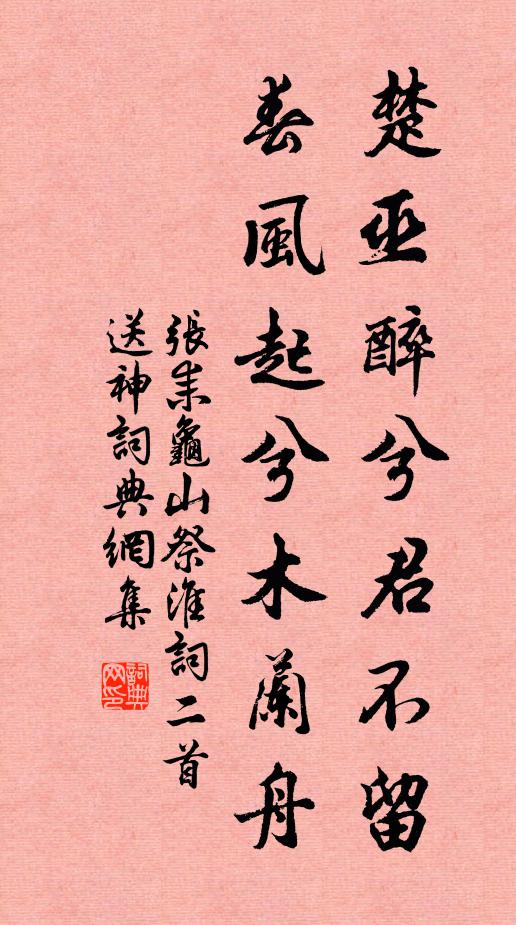 楚巫醉兮君不留
春風起兮木蘭舟
張耒龜山祭淮詞二首
送神詞典網集
詞典網印